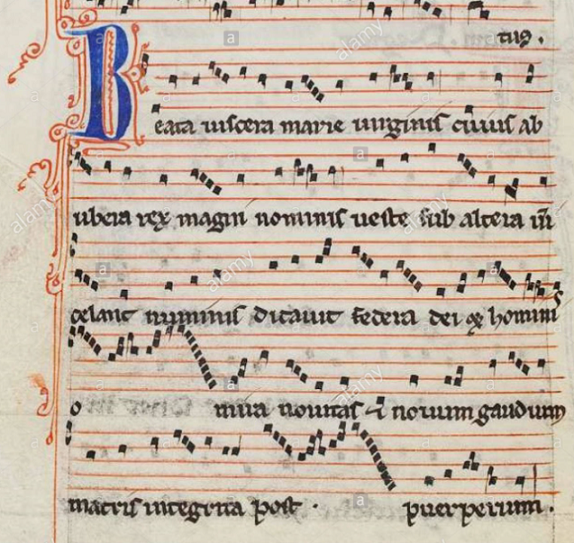 tus.
Beata viscera marie uirginis cuius ab
ubera rex magni nominis ueste sub altera
celauit numinis dictauit federa dei & hominis
o mira nouitas & nouum gaudium
matris integrita post puerperium.